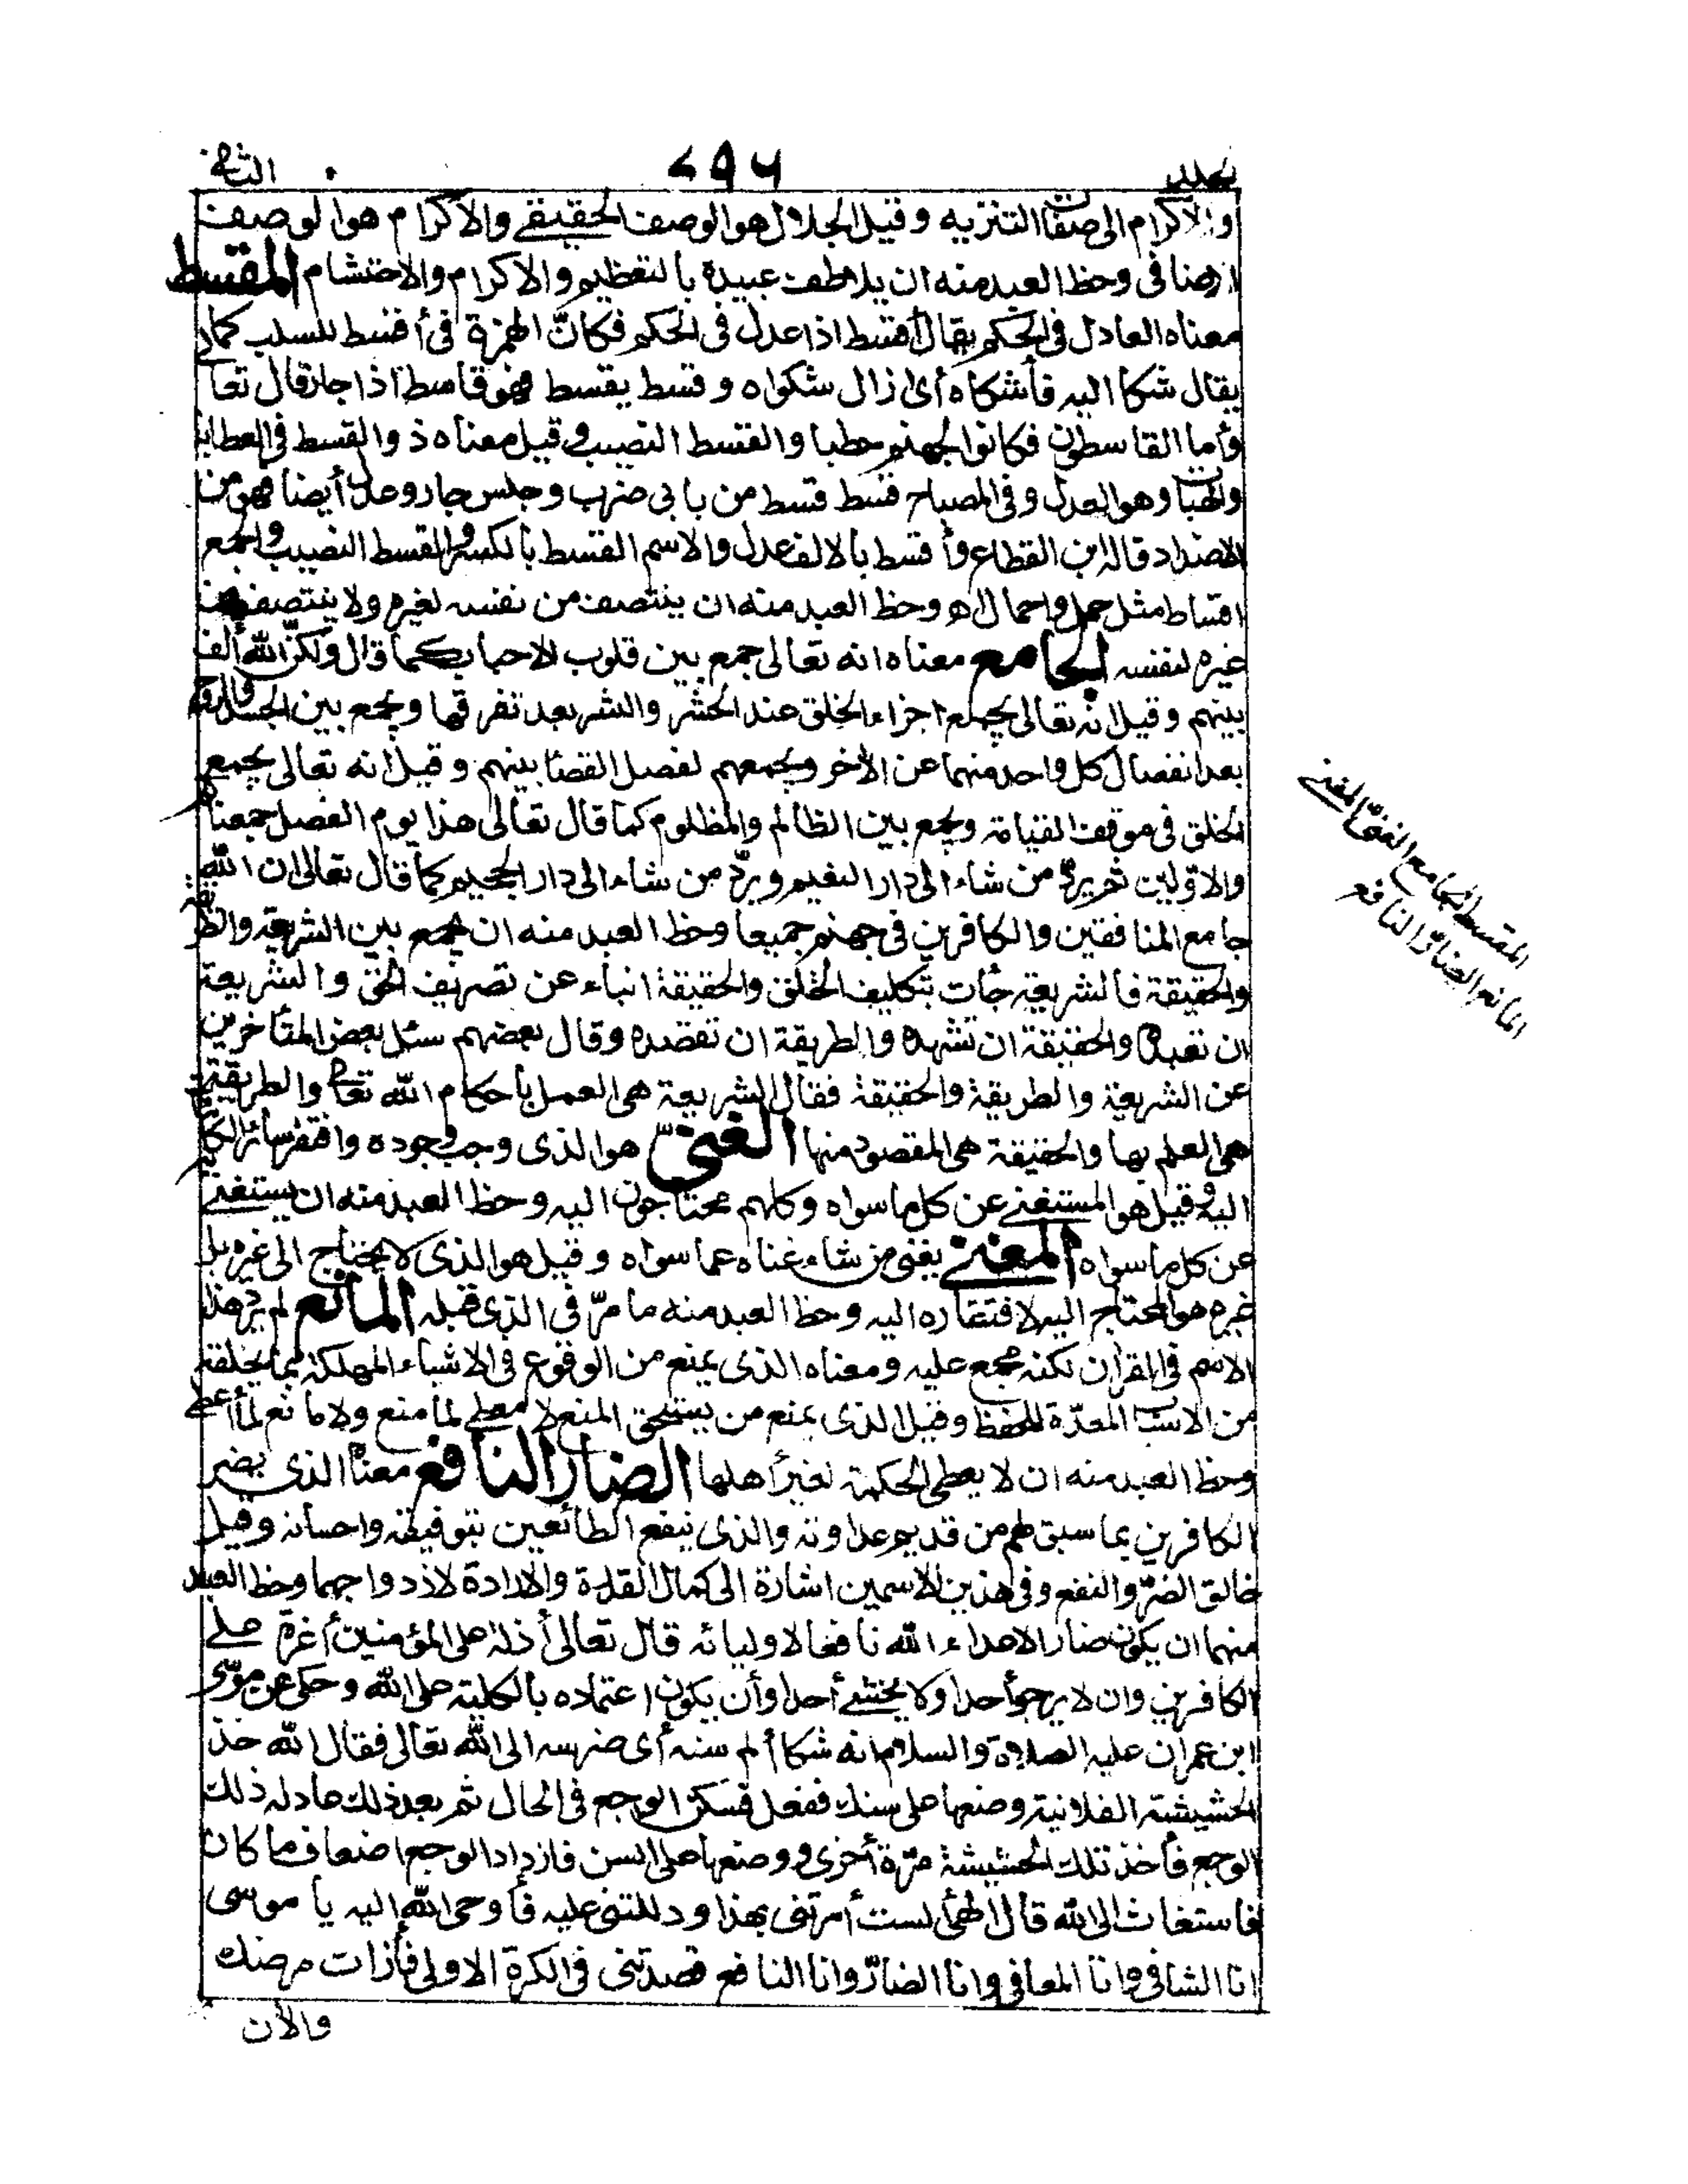 بجلد ٤٩٦ الثانى
والاكرام الى صفات التنزيه وقيل الجلال هو الوصف الحقيقى والاكرام هو الوصف
الاضافى وحظ العبد منه ان يلاطف عبيده بالتعظيم والاكرام والاحتشام المقسط
معناه العادل فى الحكم يقال أقسط اذا عدل فى الحكم فكانّ الهمزة فى أقسط للسلب كما
يقال شكا اليه فأشكاه أى ازال شكواه وقسط يقسط فهو قاسط اذا جار قال تعا
وأما القاسطون فكانوا لجهنم حطبا والقسط النصيب وقيل معناه ذو القسط فى العطايا
والهبات وهو العدل وفى المصباح قسط قسط من بابى ضرب وجلس جار وعدل أيضا فهو من
الاضداد قاله ابن القطاع وأقسط بالالف عدل والاسم القسط بالكسر والقسط النصيب والجمع
اقساط مثل حمل واحمال اه وحظ العبد منه ان ينتصف من نفسه لغيره ولا ينتصف من
غيره لنفسه الجامع معناه انه تعالى جمع بين قلوب الاحباب كما قال ولكنّ الله ألف
بينهم وقيل انه تعالى يجمع اجزاء الخلق عند الحشر والنشر بعد تفرقها ويجمع بين الجسد والروح
بعد انفصال كل واحد منهما عن الآخر ويجمعهم لفصل القضا بينهم وقيل انه تعالى يجمع
الخلق فى موقف القيامة ويجمع بين الظالم والمظلوم كما قال تعالى هذا يوم الفصل جمعناكم
والاوّلين ثم يردّ من شاء الى دار النعيم ويردّ من شاء الى دار الجحيم كما قال تعالى ان الله
جامع المنافقين والكافرين فى جهنم جميعا وحظ العبد منه ان يجمع بين الشريعة والطريقة
والحقيقة فالشريعة جأت بتكليف الخلق والحقيقة انباء عن تصريف الحق والشريعة
ان تعبده والحقيقة ان تشهده والطريقة ان تقصده وقال بعضهم سئل بعض المتأخرين
عن الشريعة والطريقة والحقيقة فقال الشريعة هى العمل بأحكام الله تعا والطريقة
هى العلم بها والحقيقة هى المقصود منها الغنىّ هو الذى وجب وجوده وافتقر سائر الكائنات
اليه وقيل هو المستغنى عن كل ما سواه وكلهم محتاجون اليه وحظ العبد منه ان يستغنى
عن كل ما سواه المغنى يغنى من شاء غناه عما سواه وقيل هو الذى لا يحتاج الى غيره بل
غيره هو المحتاج اليه لافتقاره اليه وحظ العبد منه ما مرّ فى الذى قبله المانع لم يرد هذا
الاسم فى القرآن لكنه مجمع عليه ومعناه الذى يمنع من الوقوع فى الاشياء المهلكة بما يخلقه
من الاسباب المعدّة للحفظ وقيل الذى يمنع من يستحق المنع لا معطى لما منع ولا مانع لما أعطى
وحظ العبد منه ان لا يعطى الحكمة لغير أهلها الضار النافع معناه الذى يضر
الكافرين بما سبق لهم من قديم عداوته والذى ينفع الطائعين بتوفيقه واحسانه وقيل
خالق الضرّ والنفع وفى هذين الاسمين اشارة الى كمال القدرة والارادة لازدواجهما وحظ العبد
منهما ان يكون ضار الاعداء الله نافعا لاوليائه قال تعالى أذلة على المؤمنين أعزة على
الكافرين وان لا يرجو أحدا ولا يخشى أحدا وأن يكون اعتماده بالكلية على الله وحكى عن موسى
ابن عمران عليه الصلاة والسلام انه شكا ألم سنه أى ضرسه الى الله تعالى فقال الله خذ
الحشيشة الفلانية وضعها على سنك ففعل فسكن الوجع فى الحال ثم بعد ذلك عاد له ذلك
الوجع فأخذ تلك الحشيشة مرّة أخرى ووضعها على السن فازداد الوجع اضعاف ما كان
فاستغاث الى الله قال الهى ألست أمرتنى بهذا ودللتنى عليه فأوحى الله اليه يا موسى
انا الشافى وانا المعافى وانا الضارّ وانا النافع قصدتنى فى الكرة الاولى فأزلت مرضك
والآن
المقسط الجامع الغنىّ المغنى
المانع الضارّ النافع